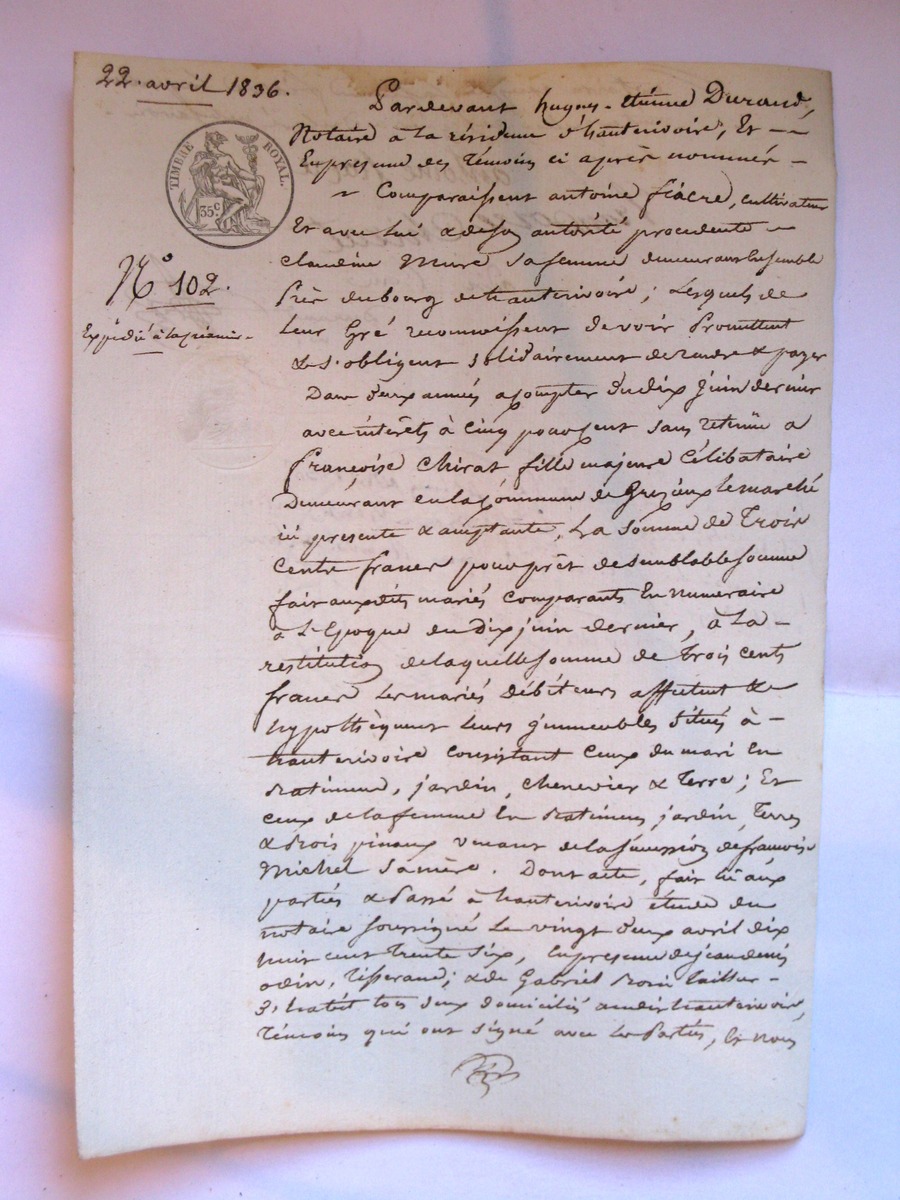 22. avril 1836.
TIMBRE ROYAL.
35 c.
N° 102.
Expédié à la première
Pardevant hugues-etiènne Durand,
Notaire à la résidence d'hauterivoire, Et
En presence des témoins ci après nommés
Comparaissent antoine fiacre, cultivateur
Et avec lui & de son autorité procedente
claudine Mure sa femme demeurant Ensemble
Près du bourg de hauterivoire; Lesquels de
leur Gré reconnoissent devoir Promettent
& s'obligent solidairement de rendre & payer
Dans deux années a compter du dix juin dernier
avec intérêts à cinq pour cent sans retenüe a
francoise Chirat, fille majeure Célibataire
Demeurant en la Commune de Grezieux le marché
ici presente & acceptante, La somme de Trois
Cents francs pour prêt de semblable somme
fait auxdits mariés comparants En numeraire
à L'Epoque du Dix juin dernier, à La
restitution de laquelle somme de trois cents
francs Les mariés débiteurs affectent &
hypothèquent leurs immeubles situés à
hauterivoire consistant ceux du mari En
Batiments, jardin, chenevier & Terre; Et
ceux de la femme En Batiments jardin, Terres
& Bois pinaux venant de la succession de francoise
Michel sa mère. Dont acte, fait lû aux
parties & Passé à hauterivoire étude du
notaire soussigné Le vingt deux avril dix
huit cent trente six, En presence de jean denis
odin, Tisserand; & de Gabriel Tailleur
d'habit tous deux domiciliés audit hauterivoire,
Témoins qui ont signé avec Les Parties, Et nous